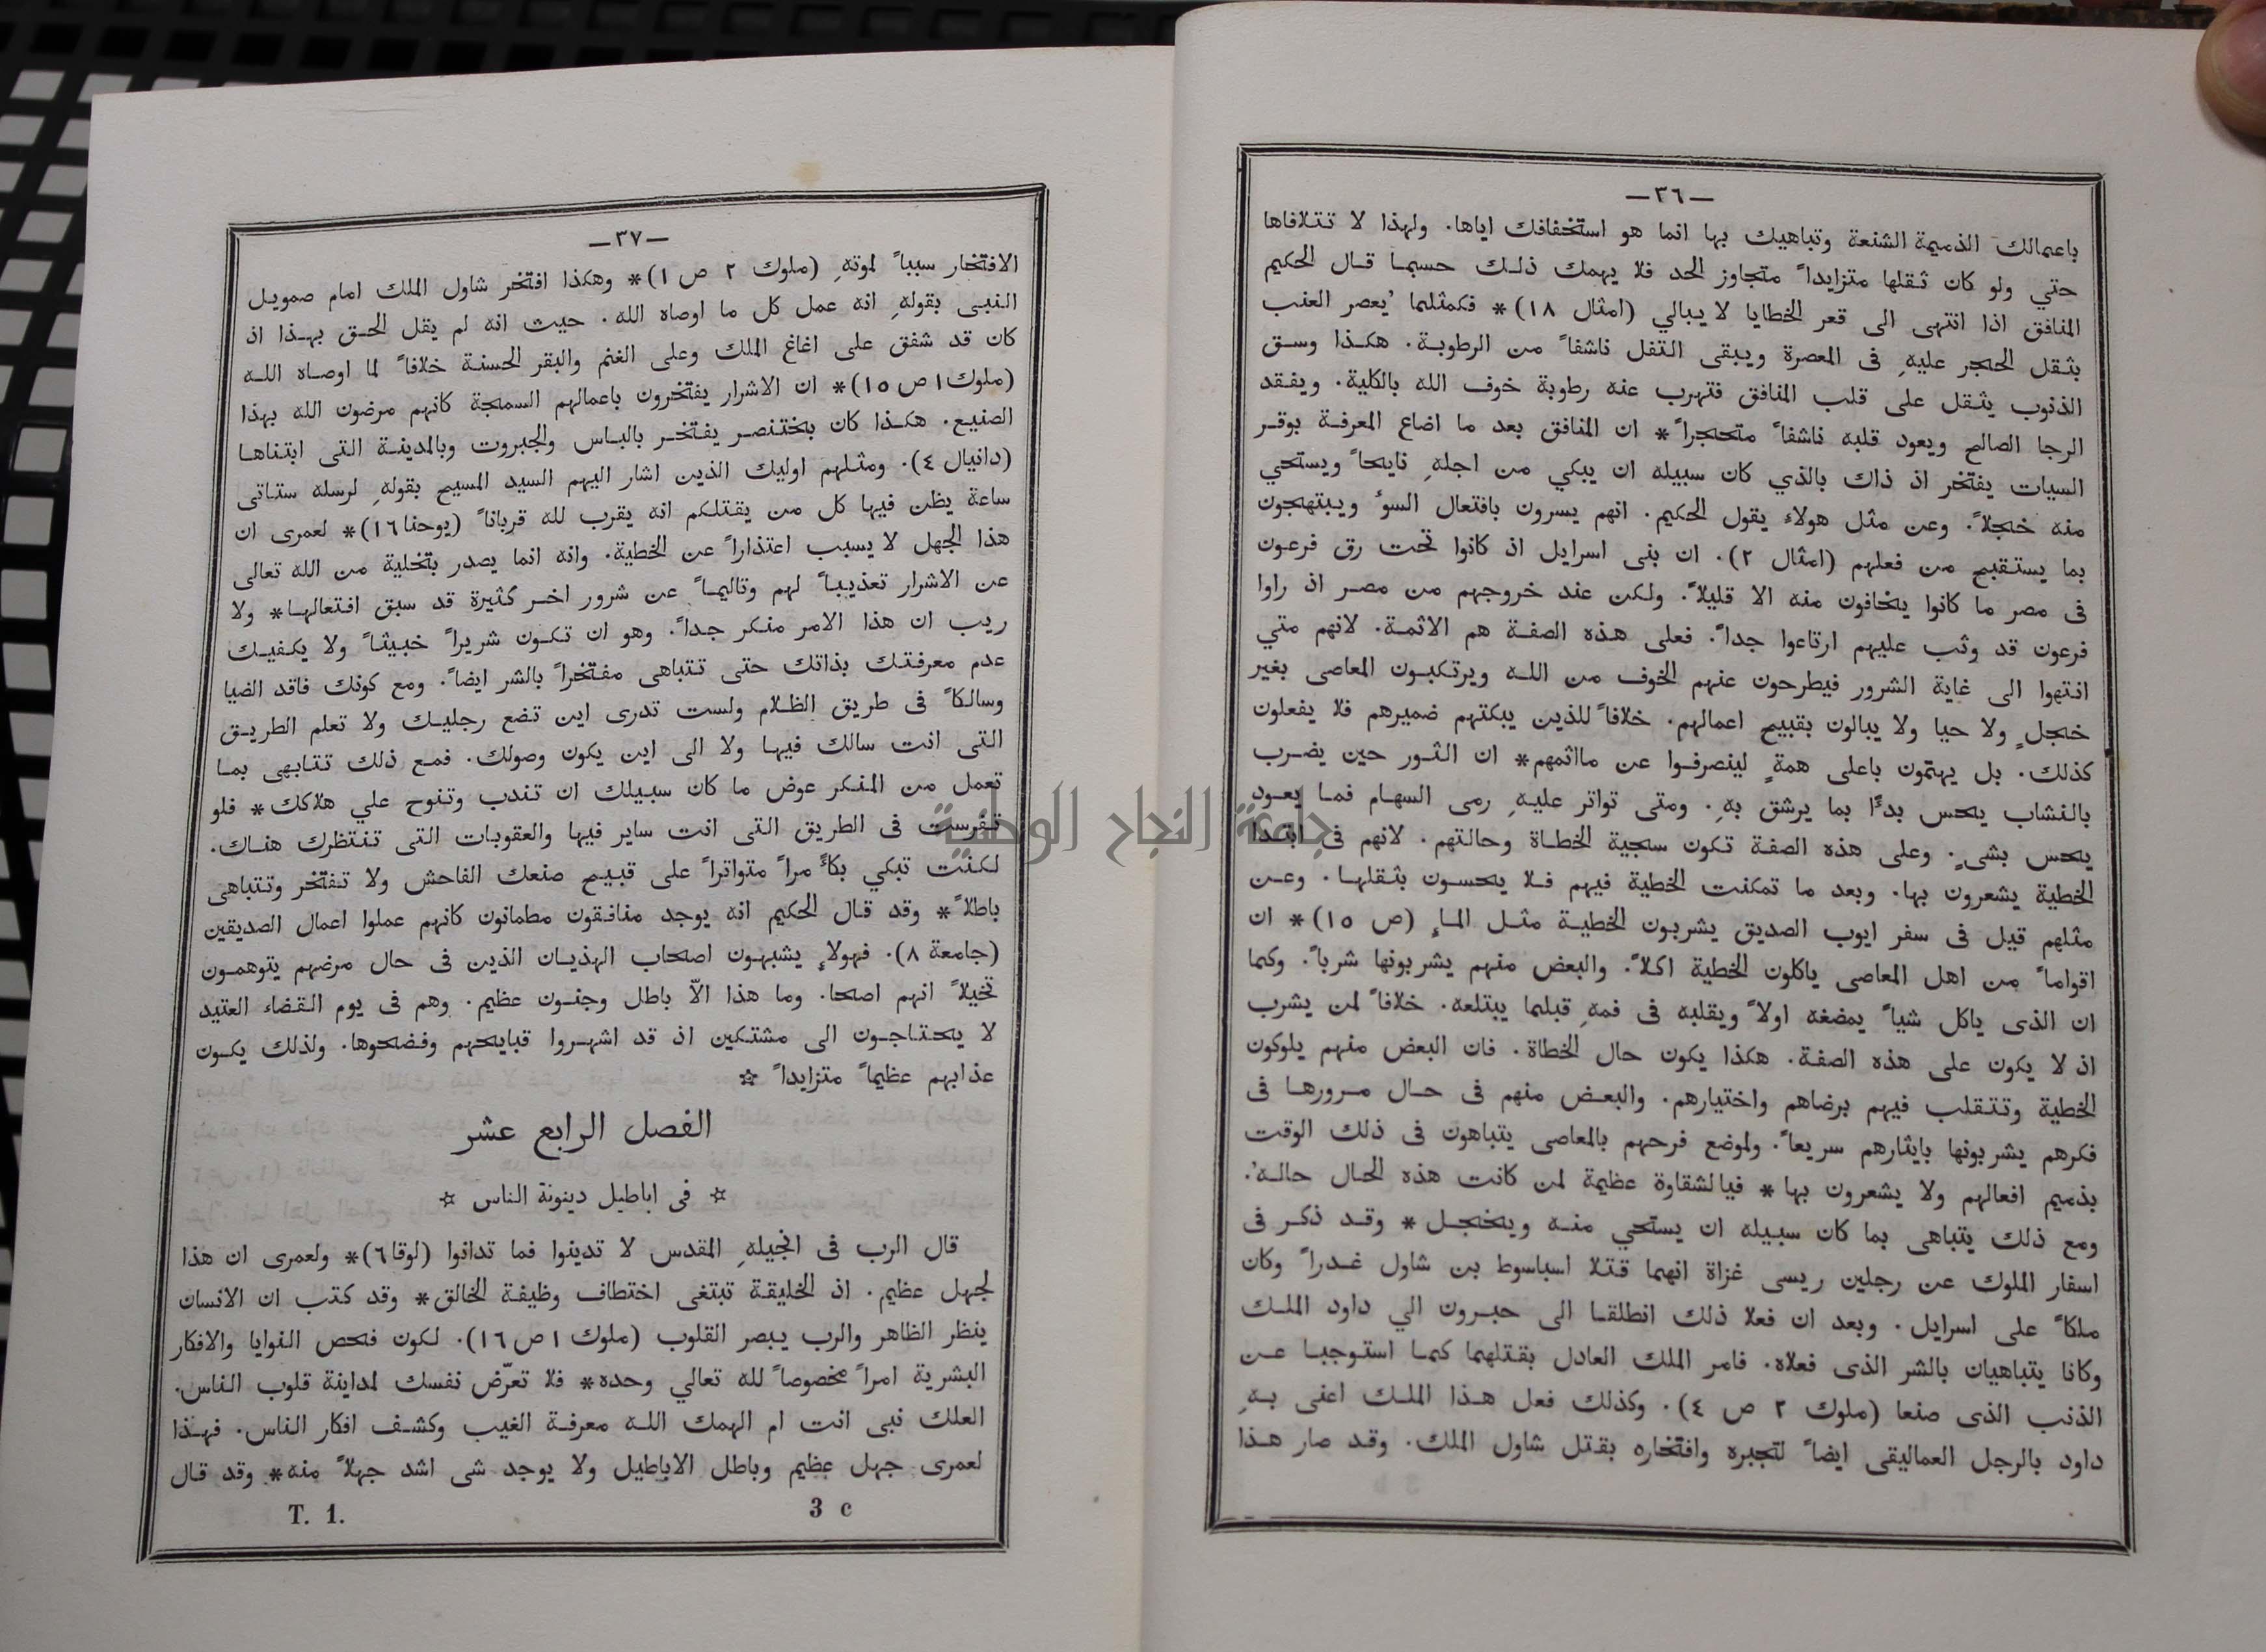 —٣٦—
باعمالك الذميمة الشنعة وتباهيك بها انما هو استخفافك اياها. ولهذا لا تتلافاها
حتي ولو كان ثقلها متزايداً متجاوز الحد فلا يهمك ذلك حسبما قال الحكيم
المنافق اذا انتهى الى قعر الخطايا لا يبالي (امثال ١٨)* فكمثلما يُعصر العنب
بثقل الحجر عليهِ فى المعصرة ويبقى التفل ناشفاً من الرطوبة. هكذا وسق
الذنوب يثقل على قلب المنافق فتهرب عنه رطوبة خوف الله بالكلية. ويفقد
الرجا الصالح ويعود قلبه ناشفاً متحجراً* ان المنافق بعد ما اضاع المعرفة بوقر
السيات يفتخر اذ ذاك بالذي كان سبيله ان يبكي من اجلهِ نايحاً ويستحي
منه خجلاً. وعن مثل هولاء يقول الحكيم. انهم يسرون بافتعال السوُ ويبتهجون
بما يستقبح من فعلهم (امثال ٢). ان بنى اسرايل اذ كانوا تحت رق فرعون
فى مصر ما كانوا يخافون منه الا قليلاً. ولكن عند خروجهم من مصر اذ راوا
فرعون قد وثب عليهم ارتاعوا جداً. فعلى هذه الصفة هم الاثمة. لانهم متي
انتهوا الى غاية الشرور فيطرحون عنهم الخوف من الله ويرتكبون المعاصى بغير
خجلٍ ولا حيا ولا يبالون بقبيح اعمالهم. خلافاً للذين يبكتهم ضميرهم فلا يفعلون
كذلك. بل يهتمون باعلى همةٍ لينصرفوا عن مااثمهم* ان الثور حين يضرب
بالنشاب يحس بدءًا بما يرشق بهِ. ومتى تواتر عليهِ رمى السهام فما يعود
يحس بشىٍ. وعلى هذه الصفة تكون سجية الخطاة وحالتهم. لانهم فى ابتدا
الخطية يشعرون بها. وبعد ما تمكنت الخطية فيهم فلا يحسون بثقلها. وعن
مثلهم قيل فى سفر ايوب الصديق يشربون الخطية مثل الماءِ (ص ١٥)* ان
اقواماً من اهل المعاصى ياكلون الخطية اكلاً. والبعض منهم يشربونها شرباً. وكما
ان الذى ياكل شياً يمضغه اولاً ويقلبه فى فمهِ قبلما يبتلعه. خلافاً لمن يشرب
اذ لا يكون على هذه الصفة. هكذا يكون حال الخطاة. فان البعض منهم يلوكون
الخطية وتتقلب فيهم برضاهم واختيارهم. والبعض منهم فى حال مرورها فى
فكرهم يشربونها بايثارهم سريعاً. ولموضع فرحهم بالمعاصى يتباهون فى ذلك الوقت
بذميم افعالهم ولا يشعرون بها* فيالشقاوة عظيمة لمن كانت هذه الحال حالهُ.
ومع ذلك يتباهى بما كان سبيله ان يستحي منه ويخجل* وقد ذكر فى
اسفار الملوك عن رجلين ريسى غزاة انهما قتلا اسباسوط بن شاول غدراً وكان
ملكاً على اسرايل. وبعد ان فعلا ذلك انطلقا الى حبرون الي داود الملك
وكانا يتباهيان بالشر الذى فعلاه. فامر الملك العادل بقتلهما كما استوجبا عن
الذنب الذى صنعا (ملوك ٢ ص ٤). وكذلك فعل هذا الملك اعنى بهِ
داود بالرجل العماليقى ايضاً لتجبره وافتخاره بقتل شاول الملك. وقد صار هذا
—٣٧—
الافتخار سبباً لموتهِ (ملوك ٢ ص ١)* وهكذا افتخر شاول الملك امام صمويل
النبى بقولهِ انه عمل كل ما اوصاه الله. حيث انه لم يقل الحق بهذا اذ
كان قد شفق على اغاغ الملك وعلى الغنم والبقر الحسنة خلافاً لما اوصاه الله
(ملوك ١ ص ١٥)* ان الاشرار يفتخرون باعمالهم السمجة كانهم مرضون الله بهذا
الصنيع. هكذا كان بختنصر يفتخر بالباس والجبروت وبالمدينة التى ابتناها
(دانيال ٤). ومثلهم اوليك الذين اشار اليهم السيد المسيح بقولهِ لرسله ستاتى
ساعة يظن فيها كل من يقتلكم انه يقرب لله قرباناً (يوحنا ١٦)* لعمرى ان
هذا الجهل لا يسبب اعتذاراً عن الخطية. وانه انما يصدر بتخلية من الله تعالى
عن الاشرار تعذيباً لهم وتاليماً عن شرور اخر كثيرة قد سبق افتعالها* ولا
ريب ان هذا الامر منكر جداً. وهو ان تكون شريراً خبيثاً ولا يكفيك
عدم معرفتك بذاتك حتى تتباهى مفتخراً بالشر ايضاً. ومع كونك فاقد الضيا
وسالكاً فى طريق الظلام ولست تدرى اين تضع رجليك ولا تعلم الطريق
التى انت سالك فيها ولا الى اين يكون وصولك. فمع ذلك تتابهى بما
تعمل من المنكر عوض ما كان سبيلك ان تندب وتنوح علي هلاكك* فلو
تفرست فى الطريق التى انت ساير فيها والعقوبات التى تنتظرك هناك.
لكنت تبكي بكاً مراً متواتراً على قبيح صنعك الفاحش ولا تفتخر وتتباهى
باطلاً* وقد قال الحكيم انه يوجد منافقون مطمانون كانهم عملوا اعمال الصديقين
(جامعة ٨). فهولاءِ يشبهون اصحاب الهذيان الذين فى حال مرضهم يتوهمون
تخيلاً انهم اصحا. وما هذا الاّ باطل وجنون عظيم. وهم فى يوم القضاء العتيد
لا يحتاجون الى مشتكين اذ قد اشهروا قبايحهم وفضحوها. ولذلك يكون
عذابهم عظيماً متزايداً ☆
الفصل الرابع عشر
☆ فى اباطيل دينونة الناس ☆
قال الرب فى انجيلهِ المقدس لا تدينوا فما تدانوا (لوقا ٦)* ولعمرى ان هذا
لجهل عظيم. اذ الخليقة تبتغى اختطاف وظيفة الخالق* وقد كتب ان الانسان
ينظر الظاهر والرب يبصر القلوب (ملوك ١ ص ١٦). لكون فحص النوايا والافكار
البشرية امراً مخصوصاً لله تعالي وحده* فلا تعرّض نفسك لمداينة قلوب الناس.
العلك نبى انت ام الهمك الله معرفة الغيب وكشف افكار الناس. فهذا
لعمرى جهل عظيم وباطل الاباطيل ولا يوجد شى اشد جهلاً منه* وقد قال
T. 1. 3 c
جامعة النجاح الوطنية